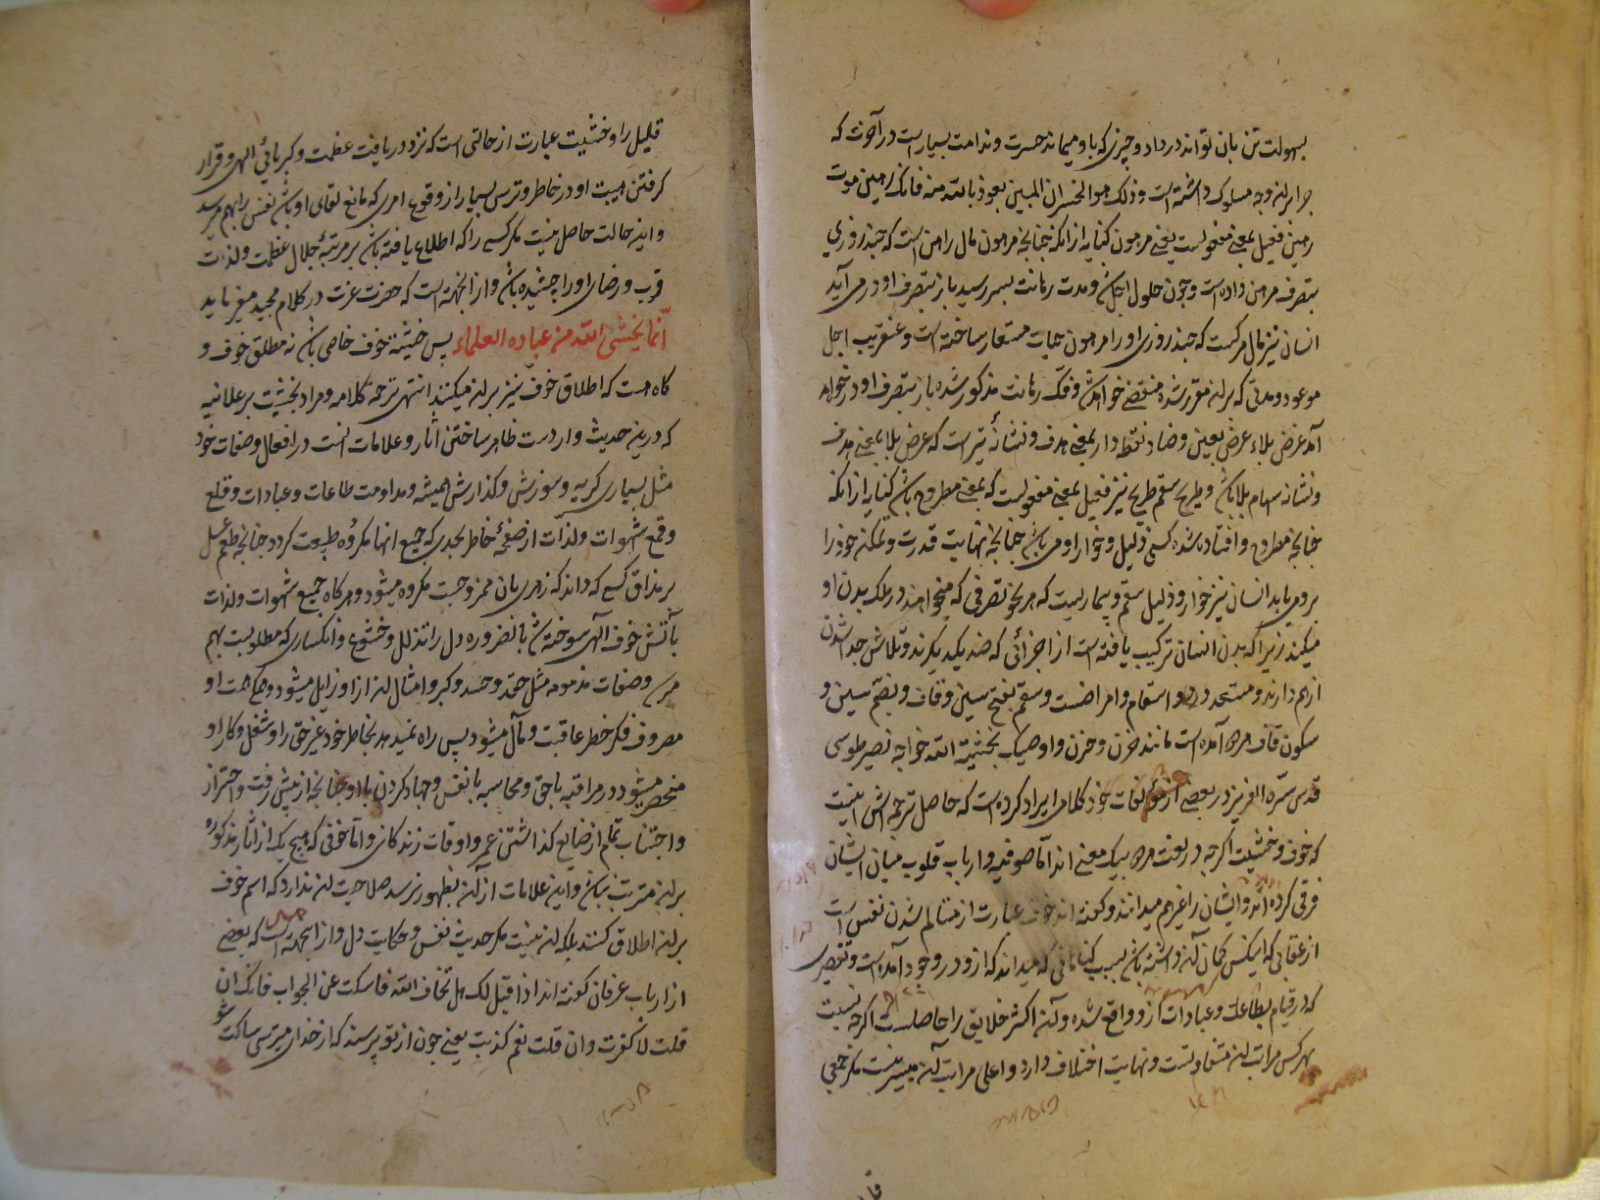 بسهولت تن بان تواند در داد و چیزی که با او میماند حسرت و ندامت بسیارست در آخرت که
جرا بر این وجه مسلوک داشته است وذلک هو الخسران المبین نعوذ بالله منه فانک رهین موت
رهین فعیل بمعنی مفعولست یعنی مرهون کنایه از انکه چنانچه مرهون مال راهن است که چند روزی
بتصرف مرتهن داده است و چون حلول اجل شد و مدت رهانت بسر رسید باز بتصرف او در می آید
انسان نیز مال مرگست که چند روزی او را مرهون حیات مستعار ساخته است و عنقریب اجل
موعود و مدتی که بر ان مقرر شده منقضی خواهد شد و فک رهانت مذکور شده باز بتصرف او در خواهد
آمد غرض بلاء غرض بعین و ضاد نقطه دار بمعنی هدف و نشانهٔ تیر است که غرض بلا بمعنی هدف
و نشانه سهام بلا باشد و طریح سقم طریح نیز فعیل بمعنی مفعولست که بمعنی مطروح باشد کنایه از انکه
چنانچه مطروح و افتاده شده کسی ذلیل و خوار او می باشد چنانچه نهایت قدرت و تمکنه خود را
برو می یابد انسان نیز خوار و ذلیل سقم و بیماریست که هر نحو تصرفی که میخواهند در ملک بدن او
میکنند زیرا که بدن انسان ترکیب یافته است از اجزائی که ضد یکدیگرند و تلاش جدا شدن
از هم دارند و مستعد ورود اسقام و امراضست و سقم بفتح سین و قاف و بضم سین و
سکون قاف هر دو آمده است مانند حَزَن و حزن و اوصیک بخشیة الله خواجه نصیر طوسی
قدس سره العزیز در بعضی از مؤلفات خود کلامی ایراد کرده است که حاصل ترجمه اش اینست
که خوف و خشیت اگرچه در لغت هر دو بیک معنی اند اما صوفیه و ارباب قلوب میان ایشان
فرقی کرده اند و ایشان را غیر هم میدانند و گفته اند خوف عبارت از متالم شدن نفس است
از عقابی که اینکس گمان آن داشته باشد بسبب گناهانی که میداند که از و در وجود آمده است و تقصیری
که در قیام بطاعات و عبادات از و واقع شده و آن اکثر خلایق را حاصلست اگرچه نسبت
بهر کس مراتب آن متفاوتست و نهایت اختلاف دارد و اعلی مراتب آن میسر نیست مگر جمعی
قلیل را و خشیت عبارت از حالتی است که نزد دریافت عظمت و کبریائی الهی و قرار
گرفتن هیبت او در خاطر و ترس بسیار از وقوع امری که مانع لقای او باشد نفس را بهم میرسد
و این حالت حاصل نیست مگر کسی را که اطلاع یافته باشد بر مرتبهٔ جلال عظمت و لذات
قرب و رضای او را چشیده باشد و از اینجهتست که حضرت عزت در کلام مجید میفرماید
انما یخشی الله من عباده العلماء پس خشیة خوف خاصی باشد نه مطلق خوف و
گاه هست که اطلاق خوف نیز بر ان میکنند انتهی ترجمة کلامه و مراد بخشیت بر علانیه
که درین حدیث واردست ظاهر ساختن اثار و علامات انست در افعال و صفات خود
مثل بسیاری گریه و سوزش و گذارش همیشه و مداومت طاعات و عبادات و قلع
و قمع شهوات و لذات از صفحهٔ خاطر بحدی که جمیع انها مکروه طبیعت گردد چنانچه طعم عسل
بر مذاق کسی که داند که زهری بان ممزوجست مکروه میشود و هر گاه جمیع شهوات و لذات
بآتش خوف الهی سوخته شد بالضروره دل را تذلل و خشوع و انکساری که مطلوبست بهم
میرسد و صفات مذمومه مثل حقد و حسد و کبر و امثال ان از او زایل میشود و همگی همت او
مصروف فکر خطر عاقبت و مآل میشود پس راه نمیدهد بخاطر خود غیر حق را و شغل و کار او
منحصر میشود در مراقبه با حق و محاسبه با نفس و جهاد کردن با او چنانچه از پیش رفت و احتراز
و اجتناب تمام از ضایع گذاشتن عمر و اوقات زندگانی و اما خوفی که هیچ یک از اثار مذکوره
بر ان مترتب نباشد و این علامات از ان بظهور نرسد صلاحیت ان ندارد که اسم خوف
بر ان اطلاق کنند بلکه ان نیست مگر حدیث نفس و حکایت دل و از اینجهة است که بعضی
از ارباب عرفان گفته اند اذا قیل لک هل تخاف الله فاسکت عن الجواب فانک ان
قلت لا کفرت و ان قلت نعم کذبت یعنی چون از تو پرسند که از خدا میترسی ساکت شو